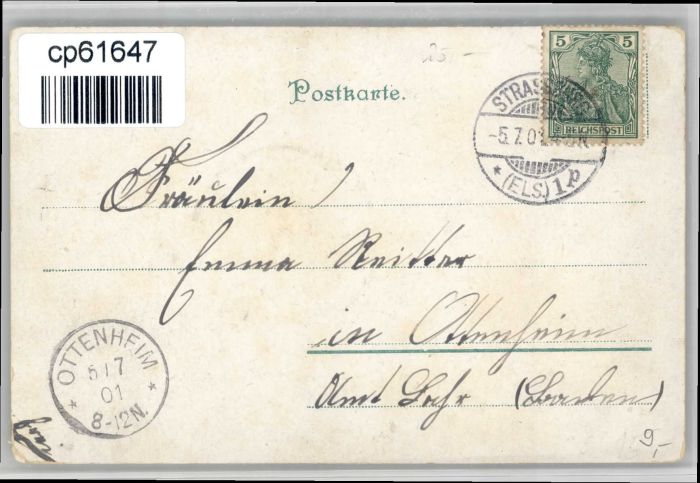 cp61647
25.-
5 5
REICHSPOST
Postkarte.
STRASSBURG
-5.7.01
* (ELS.) 1 p
Fräulein
Emma Reitter
in Ottenheim
Amt Lahr (Baden)
* OTTENHEIM *
5 7
01
8-12N.
9,-